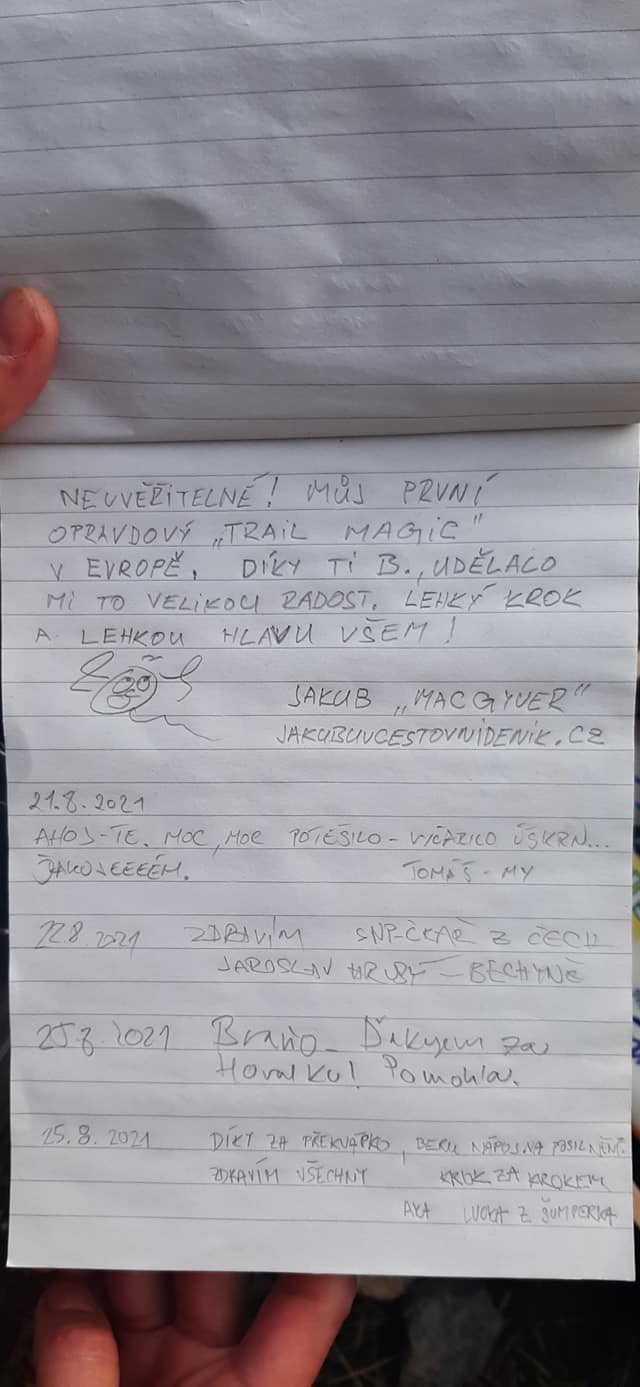 NEUVĚŘITELNÉ! MŮJ PRVNÍ
OPRAVDOVÝ „TRAIL MAGIC"
V EVROPĚ. DÍKY TI B., UDĚLALO
MI TO VELIKOU RADOST. LEHKÝ KROK
A LEHKOU HLAVU VŠEM!
JAKUB „MACGYVER"
JAKUBUVCESTOVNIDENIK.CZ
21.8.2021
AHOJ-TE. MOC, MOC POTĚŠILO - VYČAZILO ÚŠKRN...
ĎAKOJEEEÉM. TOMÁŠ - MY
22.8.2021 ZDRAVÍM SNP-ČKAŘ Z ČECH
JAROSLAV HRUBÝ - BECHYNĚ
25.8.2021 Braňo - Ďakujem za
Horalku! Pomohla.
25.8.2021 DÍKY ZA PŘEKVÁPKO, BERU NÁPOJ NA POSILNĚNÍ.
ZDRAVÍM VŠECHNY KROK ZA KROKEM
AKA LUCKA Z ŠUMPERKA